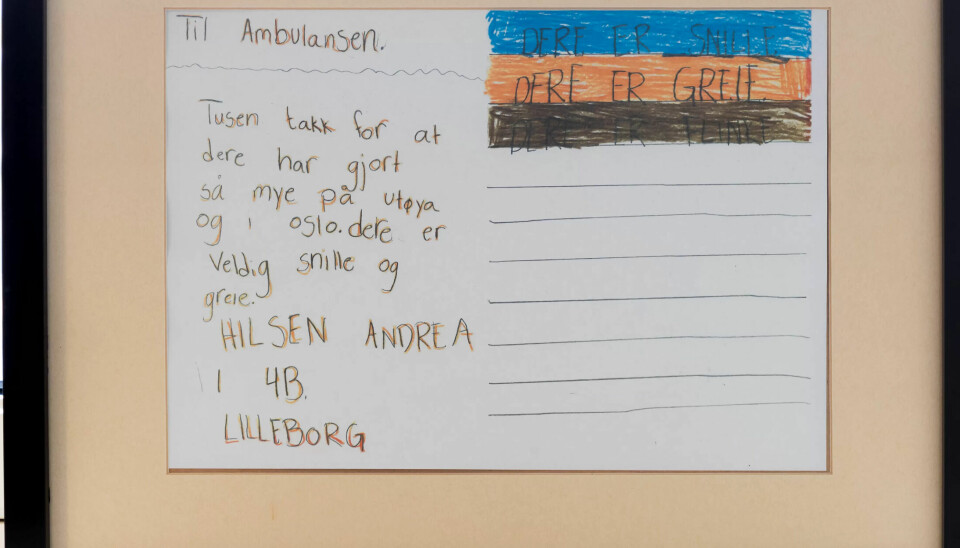 Til Ambulansen.
Tusen takk for at
dere har gjort
så mye på utøya
og i oslo. dere er
veldig snille og
greie.
HILSEN ANDREA
I 4B.
LILLEBORG
DERE ER SNILLE
DERE ER GREIE.
DERE ER FLINKE